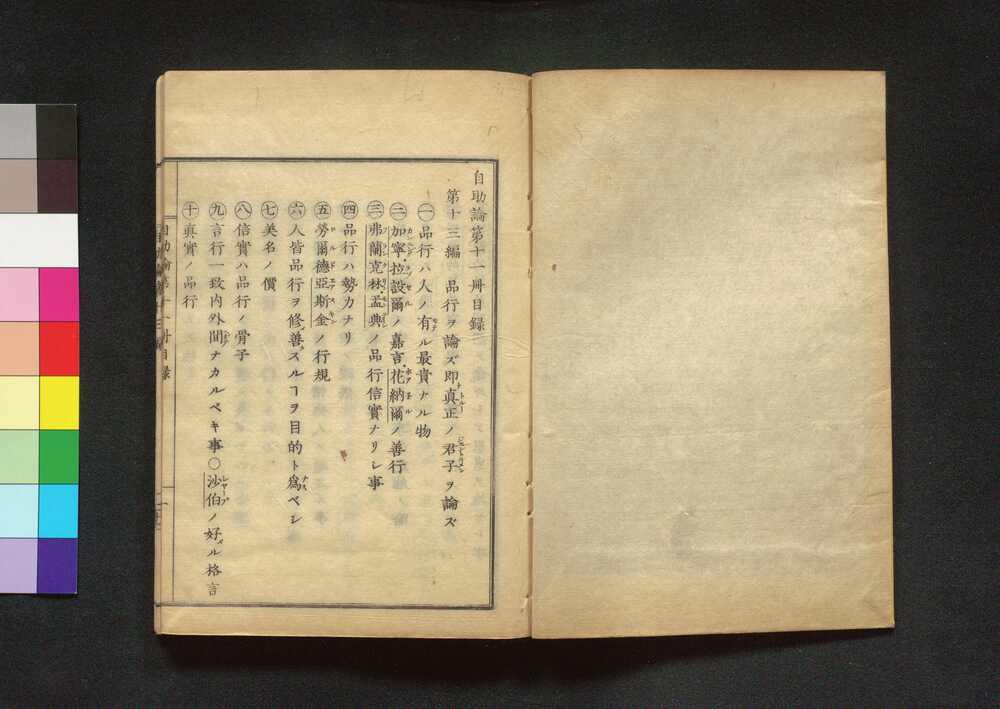 自助論第十一冊目録
第十三編 品行ヲ論ズ即真正ノ君子ヲ論ズ
㊀品行ハ人ノ有ル最貴ナル物
㊁加寧・拉設爾ノ嘉言・花納爾ノ善行
㊂弗蘭克林・孟典ノ品行信實ナリシ事
㊃品行ハ勢力ナリ
㊄労爾德亞斯金ノ行規
㊅人皆品行ヲ修善スルヿヲ目的ト為ベシ
㊆美名ノ價
㊇信實ハ品行ノ骨子
㊈言行一致内外間ナカルベキ事○沙伯ノ好メル格言
㊉真實ノ品行
自助論第十一冊目録